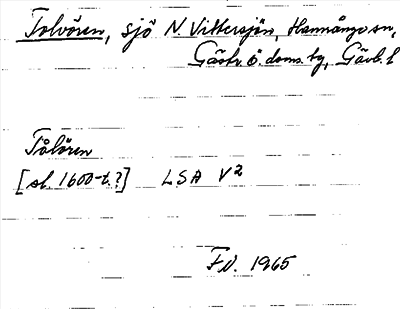 Tolvören, sjö N. Vittersjön, Hamrånge sn,
Gästr. ö. doms. tg, Gävl. l
Tålören
[sl. 1600-t.?] LSA V2
F.N. 1965